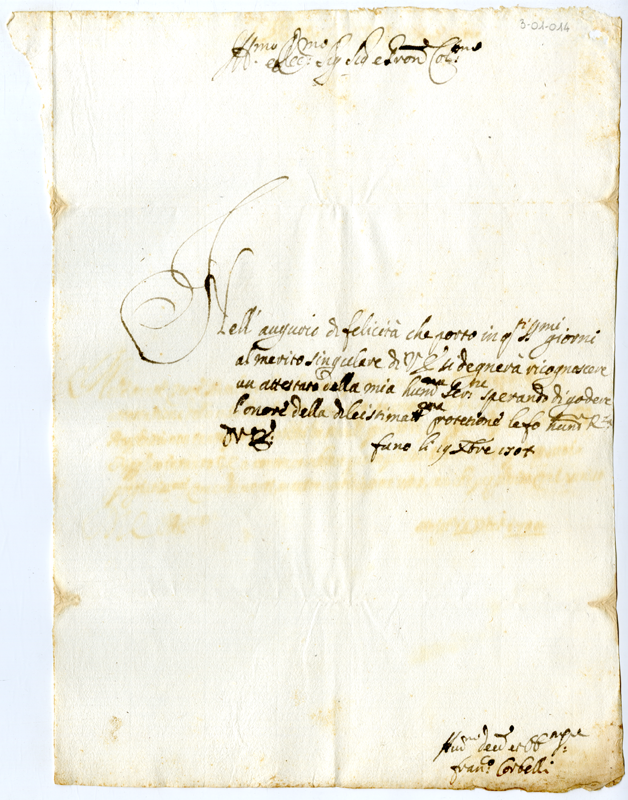 3-01-014
Ill.mo et Ecc.mo Sig.r Sig.r e Pron Col.mo
Nell'augurio di felicità che porto in q.ti S.mi giorni
al merito singulare di V.E. si degnerà ricognoscere
un attestato della mia hum.ma Ser.tù sperando di godere
l'onore della di lei stimat.ma protetione le fo hum.a R.za
D V.E.
fano li 19 Xbre 1707
Hum.mo et obb.mo
Fran.o Corbelli